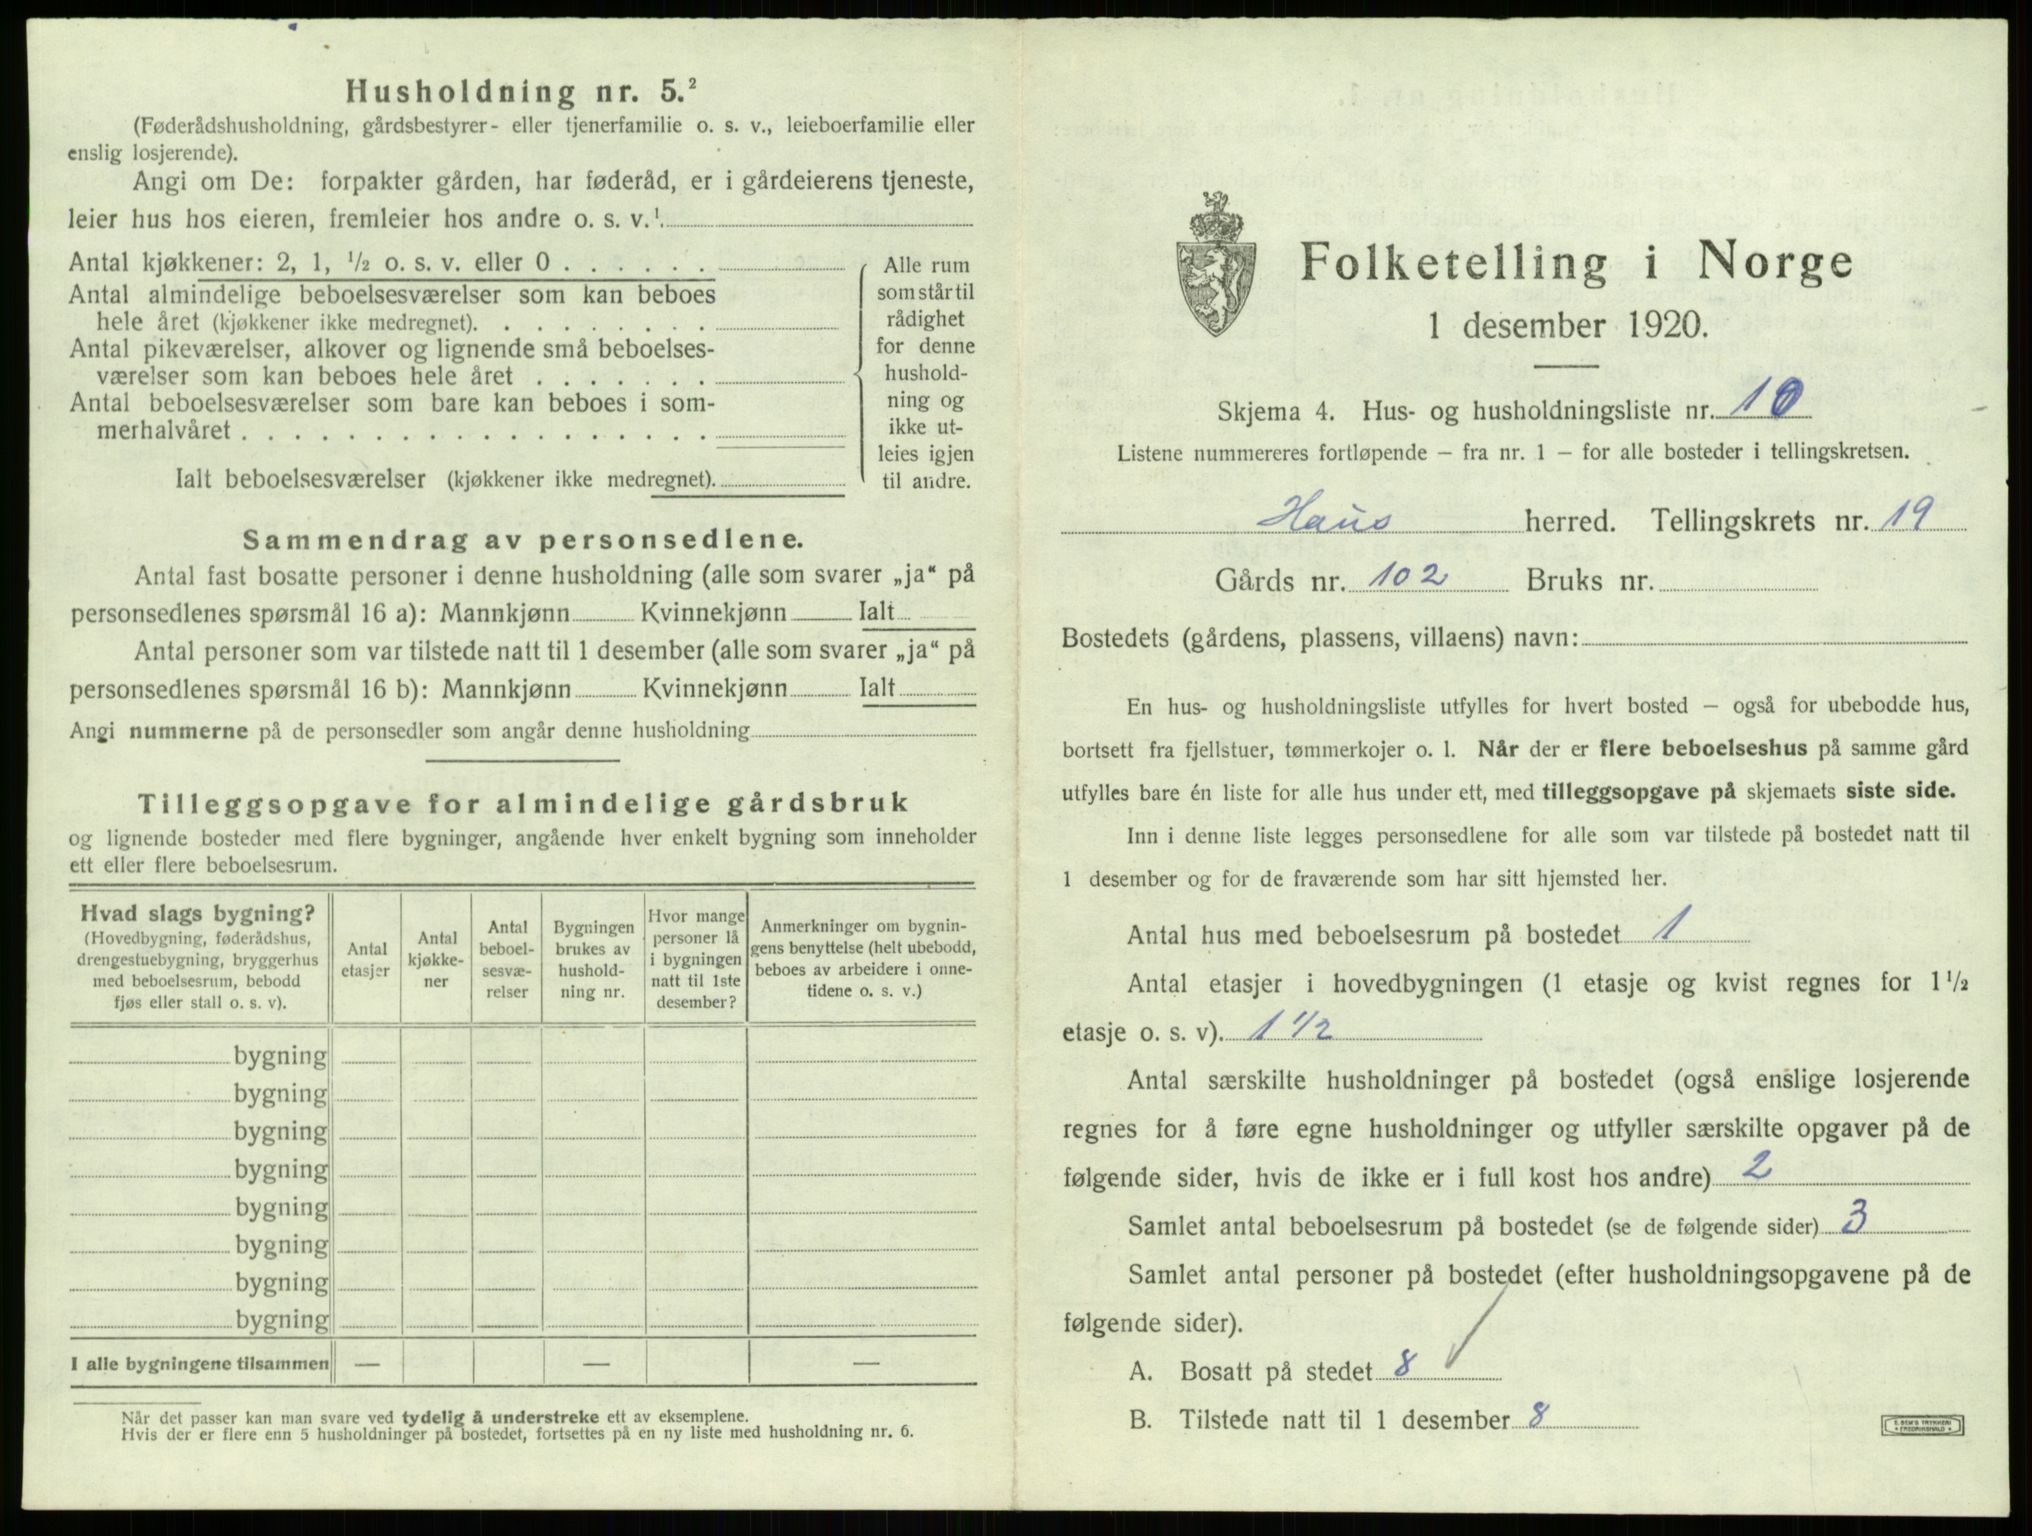 Husholdning nr. 5.²
(Føderådshusholdning, gårdsbestyrer- eller tjenerfamilie o. s. v., leieboerfamilie eller
enslig losjerende).
Angi om De: forpakter gården, har føderåd, er i gårdeierens tjeneste,
leier hus hos eieren, fremleier hos andre o. s. v.¹
Antal kjøkkener: 2, 1, ½ o. s. v. eller 0 . . . . . .
Antal almindelige beboelsesværelser som kan beboes
hele året (kjøkkener ikke medregnet). . . . . . . . .
Antal pikeværelser, alkover og lignende små beboelses-
værelser som kan beboes hele året . . . . . . .
Antal beboelsesværelser som bare kan beboes i som-
merhalvåret . . . . . . . . . . . . . . . . . .
Ialt beboelsesværelser (kjøkkener ikke medregnet).
Alle rum
som står til
rådighet
for denne
hushold-
ning og
ikke ut-
leies igjen
til andre.
Sammendrag av personsedlene.
Antal fast bosatte personer i denne husholdning (alle som svarer „ja“ på
personsedlenes spørsmål 16 a): Mannkjønn Kvinnekjønn Ialt
Antal personer som var tilstede natt til 1 desember (alle som svarer „ja“ på
personsedlenes spørsmål 16 b): Mannkjønn Kvinnekjønn Ialt
Angi nummerne på de personsedler som angår denne husholdning
Tilleggsopgave for almindelige gårdsbruk
og lignende bosteder med flere bygninger, angående hver enkelt bygning som inneholder
ett eller flere beboelsesrum.
Hvad slags bygning?
(Hovedbygning, føderådshus,
drengestuebygning, bryggerhus
med beboelsesrum, bebodd
fjøs eller stall o. s. v).
Antal
etasjer
Antal
kjøkke-
ner
Antal
beboel-
sesvæ-
relser
Bygningen
brukes av
hushold-
ning nr.
Hvor mange
personer lå
i bygningen
natt til 1ste
desember?
Anmerkninger om bygnin-
gens benyttelse (helt ubebodd,
beboes av arbeidere i onne-
tidene o. s. v.)
bygning
bygning
bygning
bygning
bygning
bygning
bygning
bygning
I alle bygningene tilsammen — — —
Når det passer kan man svare ved tydelig å understreke ett av eksemplene.
Hvis der er flere enn 5 husholdninger på bostedet, fortsettes på en ny liste med husholdning nr. 6.
Folketelling i Norge
1 desember 1920.
Skjema 4. Hus- og husholdningsliste nr. 10
Listene nummereres fortløpende – fra nr. 1 – for alle bosteder i tellingskretsen.
Haus herred. Tellingskrets nr. 19
Gårds nr. 102 Bruks nr.
Bostedets (gårdens, plassens, villaens) navn:
En hus- og husholdningsliste utfylles for hvert bosted – også for ubebodde hus,
bortsett fra fjellstuer, tømmerkojer o. l. Når der er flere beboelseshus på samme gård
utfylles bare én liste for alle hus under ett, med tilleggsopgave på skjemaets siste side.
Inn i denne liste legges personsedlene for alle som var tilstede på bostedet natt til
1 desember og for de fraværende som har sitt hjemsted her.
Antal hus med beboelsesrum på bostedet 1
Antal etasjer i hovedbygningen (1 etasje og kvist regnes for 1½
etasje o. s. v). 1 1/2
Antal særskilte husholdninger på bostedet (også enslige losjerende
regnes for å føre egne husholdninger og utfyller særskilte opgaver på de
følgende sider, hvis de ikke er i full kost hos andre) 2
Samlet antal beboelsesrum på bostedet (se de følgende sider) 3
Samlet antal personer på bostedet (efter husholdningsopgavene på de
følgende sider).
A. Bosatt på stedet 8
B. Tilstede natt til 1 desember 8
E. SEM'S TRYKKERI
FREDRIKSHALD